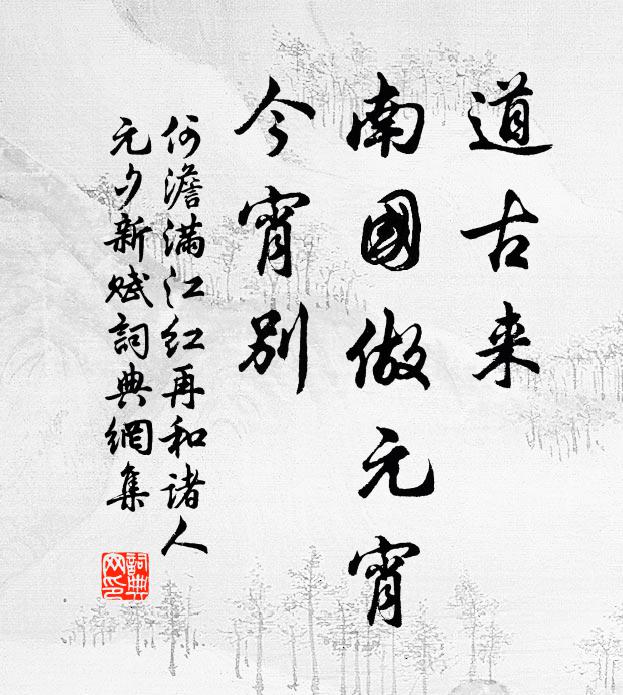 道古来
南國做元宵
今宵别
何澹满江红再和诸人
元夕新赋詞典網集
詞典網印